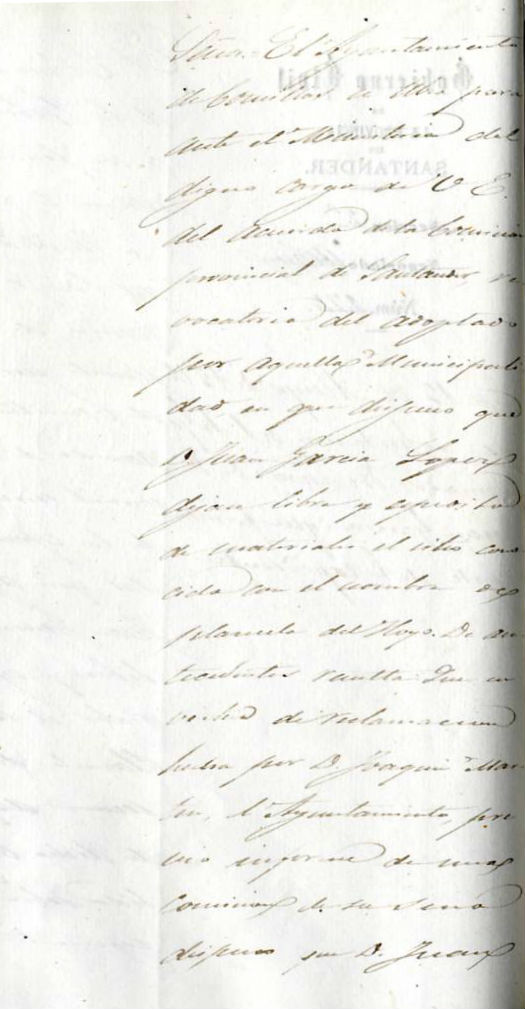 Señor. El Ayuntamiento
de Comillas se alza para
ante el Ministerio del
digno cargo de V. E.
del acuerdo de la Comision
provincial de Santander, re
vocatorio del adoptado
por aquella Municipali
dad en que dispuso que
D. Juan Garcia Lopez
dejase libre y espedito
de materiales el sitio cono
cido con el nombre de
plazuela del Hoyo. De an
tecedentes resulta: Que en
virtud de reclamacion
hecha por D. Joaquin Mar
tin, el Ayuntamiento, pre
vio informe de una
Comision de su seno
dispuso que D. Juan
Gobierno Civil
DE
LA PROVINCIA
DE
SANTANDER.